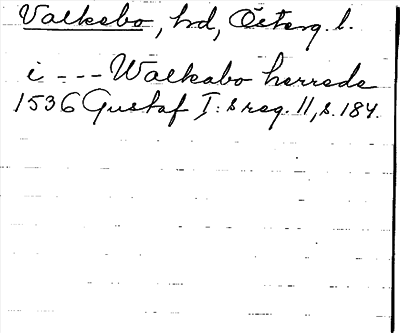 Valkebo, hd, Österg. l.
i --- Walkabo herrede
1536 Gustaf I:s reg. 11, s. 184.